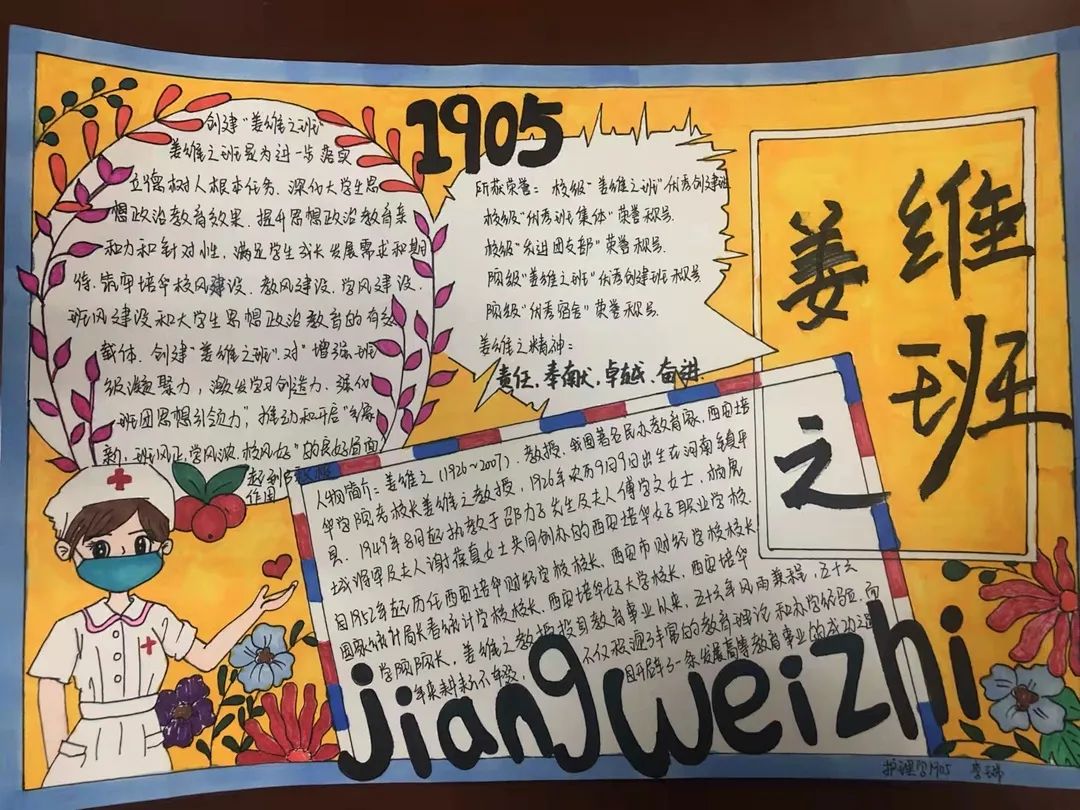 1905
姜维之班
创建“姜维之班”
姜维之班是为进一步落实
立德树人根本任务、深化大学生思
想政治教育效果、提升思想政治教育亲
和力和针对性、满足学生成长发展需求和期
待、筑牢培华校风建设、教风建设、学风建设、
班风建设和大学生思想政治教育的有效
载体、创建“姜维之班”、对“增强班
级凝聚力，激发学习创造力、强化
班团思想引领力”，推动和开启
新、班风正、学风浓、校风好”的良好局面
起到
作用
所获荣誉：校级“姜维之班”优秀创建班
校级“优秀班集体”荣誉称号.
校级“先进团支部”荣誉称号.
院级“姜维之班”优秀创建班称号.
院级“优秀宿舍”荣誉称号.
姜维之精神：
责任、奉献、卓越、奋进.
人物简介：姜维之（1926~2007）、教授、我国著名民办教育家、西安培
华学院老校长姜维之教授，1926年农历9月9日出生在河南镇平
县、1949年8月起执教于邵力子先生及夫人傅学文女士，杨虎
城将军及夫人谢葆真女士共同创办的西安培华女子职业学校、
自1952年起历任西安培华财经学校校长、西安市财经学校校长
国家统计局长春统计学校校长、西安培华女子大学校长、西安培华
学院院长，姜维之教授投身教育事业以来，五十六年风雨兼程，五十六
年来耕耘不辍，不仅积淀了丰富的教育理论和办学经验，而
且开辟了一条发展高等教育事业的成功之道
jiangweizhi
护理学1905